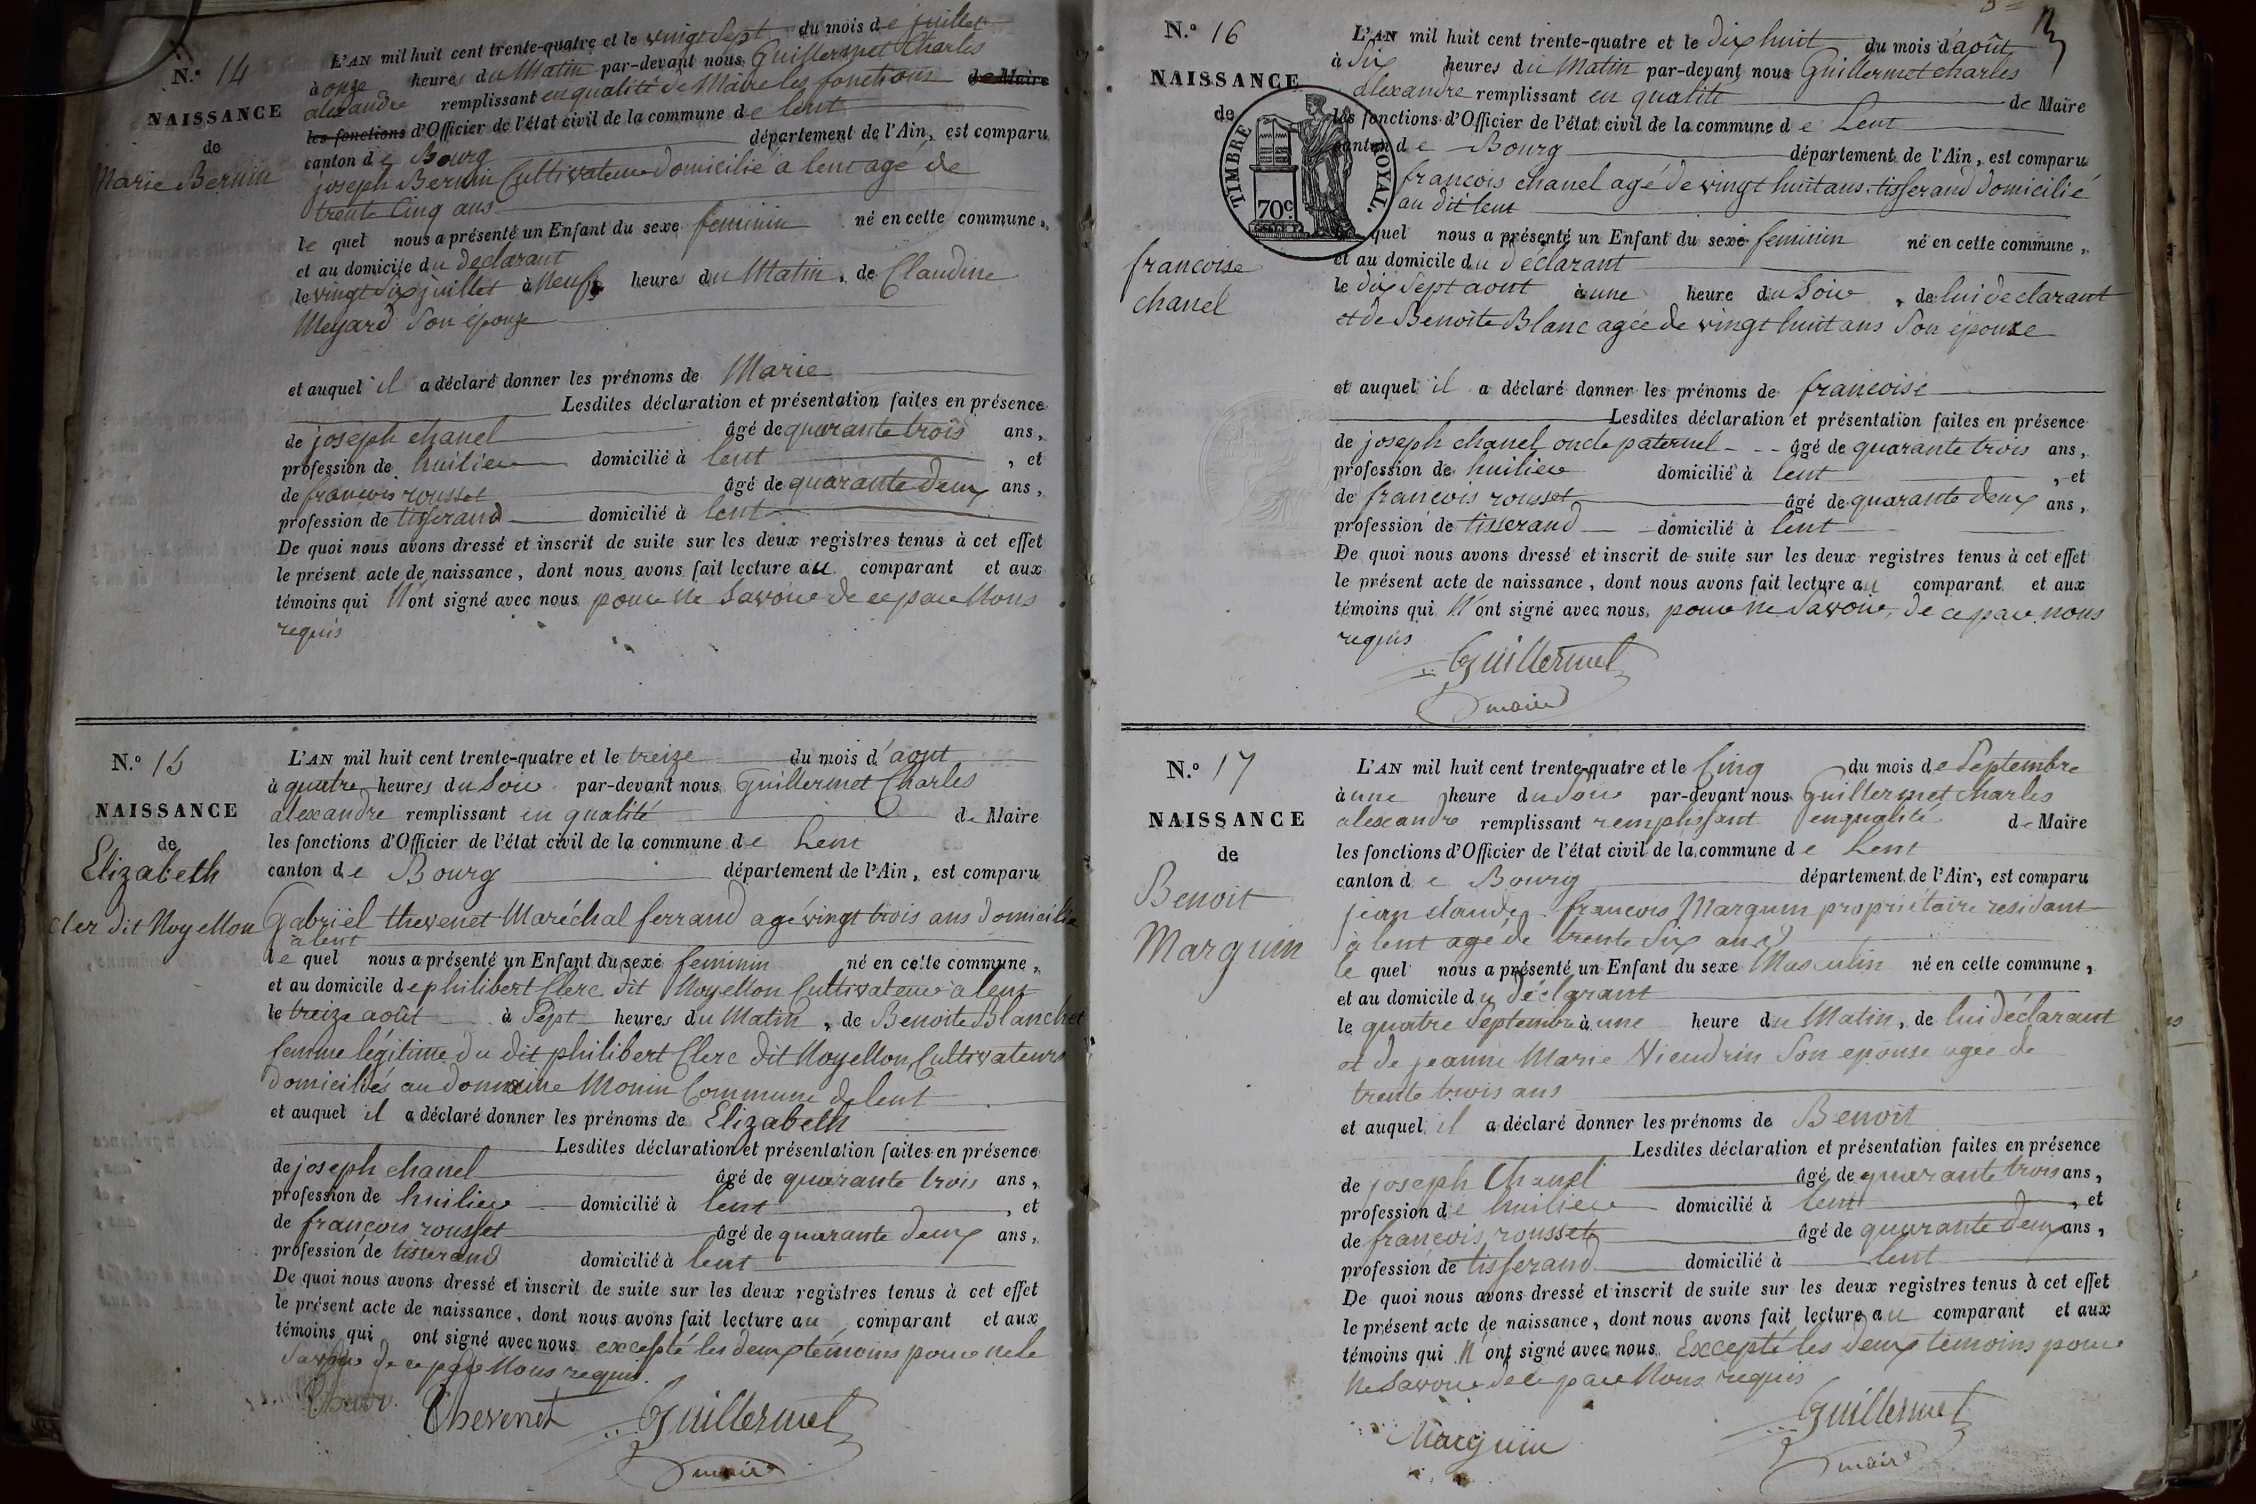 N.º 14
NAISSANCE
de
Marie Bernin
L'AN mil huit cent trente-quatre et le vingt Sept du mois de juillet
à onze heures du Matin par-devant nous Guillermet Charles
alexandre remplissant en qualité de Maire les fonctions de Maire
les fonctions d'Officier de l'état civil de la commune de lent
canton de Bourg département de l'Ain, est comparu
joseph Bernin Cultivateur domicilié à lent agé de
trente Cinq ans
le quel nous a présenté un Enfant du sexe feminin né en cette commune,
et au domicile du déclarant
le vingt Six juillet à Neuf heures du Matin, de Claudine
Meyard Son épouse
et auquel il a déclaré donner les prénoms de Marie
Lesdites déclaration et présentation faites en présence
de joseph chanel âgé de quarante trois ans,
profession de huilier domicilié à lent, et
de francois rousset âgé de quarante deux ans,
profession de tisserand domicilié à lent
De quoi nous avons dressé et inscrit de suite sur les deux registres tenus à cet effet
le présent acte de naissance, dont nous avons fait lecture au comparant et aux
témoins qui N'ont signé avec nous pour ne Savoir de ce par Nous
requis
N.º 15
NAISSANCE
de
Elizabeth
Cler dit Noyellon
L'AN mil huit cent trente-quatre et le treize du mois d'aout
à quatre heures du Soir par-devant nous Guillermet Charles
alexandre remplissant en qualité de Maire
les fonctions d'Officier de l'état civil de la commune de Lent
canton de Bourg département de l'Ain, est comparu
Gabriël thevenet Maréchal ferrand agé vingt trois ans domicilié
à lent
le quel nous a présenté un Enfant du sexe feminin né en cette commune,
et au domicile de philibert Clerc dit Noyellon Cultivateur a lent
le treize août à Sept heures du Matin, de Benoite Blanchet
femme légitime du dit philibert Clerc dit Noyellon, Cultivateurs
domiciliés au domaine Monin Commune de lent
et auquel il a déclaré donner les prénoms de Elizabeth
Lesdites déclaration et présentation faites en présence
de joseph chanel âgé de quarante trois ans,
profession de huilier domicilié à lent, et
de françois rousset âgé de quarante deux ans,
profession de tisserand domicilié à lent
De quoi nous avons dressé et inscrit de suite sur les deux registres tenus à cet effet
le présent acte de naissance, dont nous avons fait lecture au comparant et aux
témoins qui ont signé avec nous excepté les deux témoins pour ne le
Savoir de ce par Nous requis.
Thevenet Guillermet
maire
N.º 16
NAISSANCE
de
francoise
chanel
TIMBRE ROYAL.
70c
L'AN mil huit cent trente-quatre et le dix huit du mois d'août
à Six heures du Matin par-devant nous Guillermet charles
alexandre remplissant en qualité de Maire
les fonctions d'Officier de l'état civil de la commune de Lent
canton de Bourg département de l'Ain, est comparu
francois chanel agé de vingt huit ans, tisserand domicilié
au dit lent
quel nous a présenté un Enfant du sexe feminin né en cette commune,
et au domicile du déclarant
le dix Sept aout à une heure du Soir, de lui declarant
et de Benoite Blanc agée de vingt huit ans Son épouse
et auquel il a déclaré donner les prénoms de francoise
Lesdites déclaration et présentation faites en présence
de joseph chanel oncle paternel âgé de quarante trois ans,
profession de huilier domicilié à lent, et
de francois rousset âgé de quarante deux ans,
profession de tisserand domicilié à lent
De quoi nous avons dressé et inscrit de suite sur les deux registres tenus à cet effet
le présent acte de naissance, dont nous avons fait lecture au comparant et aux
témoins qui N'ont signé avec nous, pour ne Savoir, de ce par nous
requis
Guillermet
maire
N.º 17
NAISSANCE
de
Benoit
Marguin
L'AN mil huit cent trente-quatre et le Cinq du mois de Septembre
à une heure du Soir par-devant nous Guillermet charles
alexandre remplissant remplissant en qualité de Maire
les fonctions d'Officier de l'état civil de la commune de Lent
canton de Bourg département de l'Ain, est comparu
jean claude francois Marguin propriétaire residant
à lent agé de trente Six ans
le quel nous a présenté un Enfant du sexe Masculin né en cette commune,
et au domicile du déclarant
le quatre Septembre à une heure du Matin, de lui déclarant
et de jeanne Marie Niendrin Son epouse agee de
trente trois ans
et auquel il a déclaré donner les prénoms de Benoit
Lesdites déclaration et présentation faites en présence
de joseph Chanel âgé de quarante trois ans,
profession de huilier domicilié à lent, et
de francois rousset âgé de quarante deux ans,
profession de tisserand domicilié à lent
De quoi nous avons dressé et inscrit de suite sur les deux registres tenus à cet effet
le présent acte de naissance, dont nous avons fait lecture au comparant et aux
témoins qui N'ont signé avec nous Excepté les deux temoins pour
Ne Savoir de ce par Nous requis
Marguin Guillermet
maire